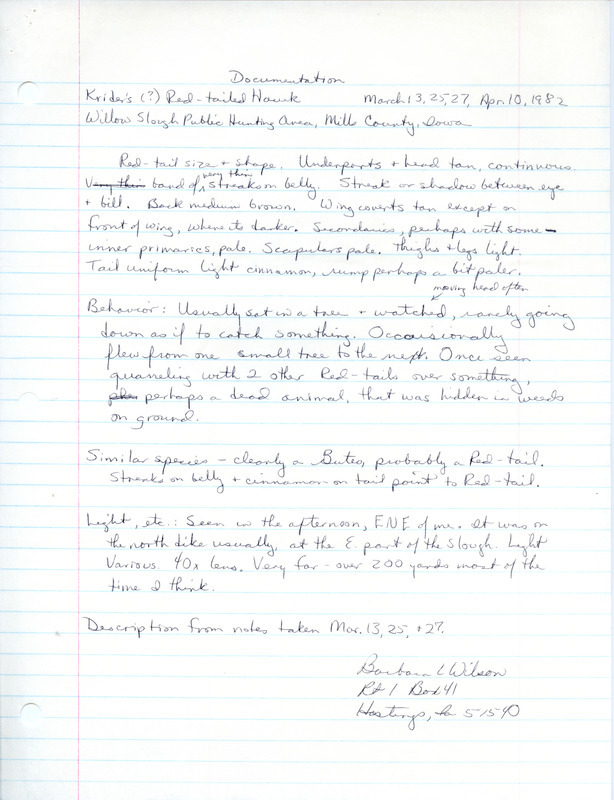 Documentation
Krider's (?) Red-tailed Hawk March 13, 25, 27, Apr. 10, 1982
Willow Slough Public Hunting Area, Mills County, Iowa
Red-tail size + shape. Underparts + head tan, continuous.
very thin
Very thin band of streaks on belly. Streak or shadow between eye
+ bill. Back medium brown. Wing coverts tan except on
front of wing, where its darker. Secondaries, perhaps with some
inner primaries, pale. Scapulars pale. Thighs + legs light.
Tail uniform light cinnamon, rump perhaps a bit paler.
moving head often
Behavior: Usually sat in a tree + watched, rarely going
down as if to catch something. Occaisionally
flew from one small tree to the next. Once seen
quarreling with 2 other Red-tails over something,
perhaps a dead animal, that was hidden in weeds
on ground.
Similar species - clearly a Buteo, probably a Red-tail.
Streaks on belly + cinnamon on tail point to Red-tail.
Light, etc.: Seen in the afternoon, ENE of me. It was on
the north dike usually, at the E. part of the slough. Light
various. 40x lens. Very far - over 200 yards most of the
time I think.
Description from notes taken Mar. 13, 25, + 27.
Barbara L Wilson
Rt 1 Box 41
Hastings, Ia 51540